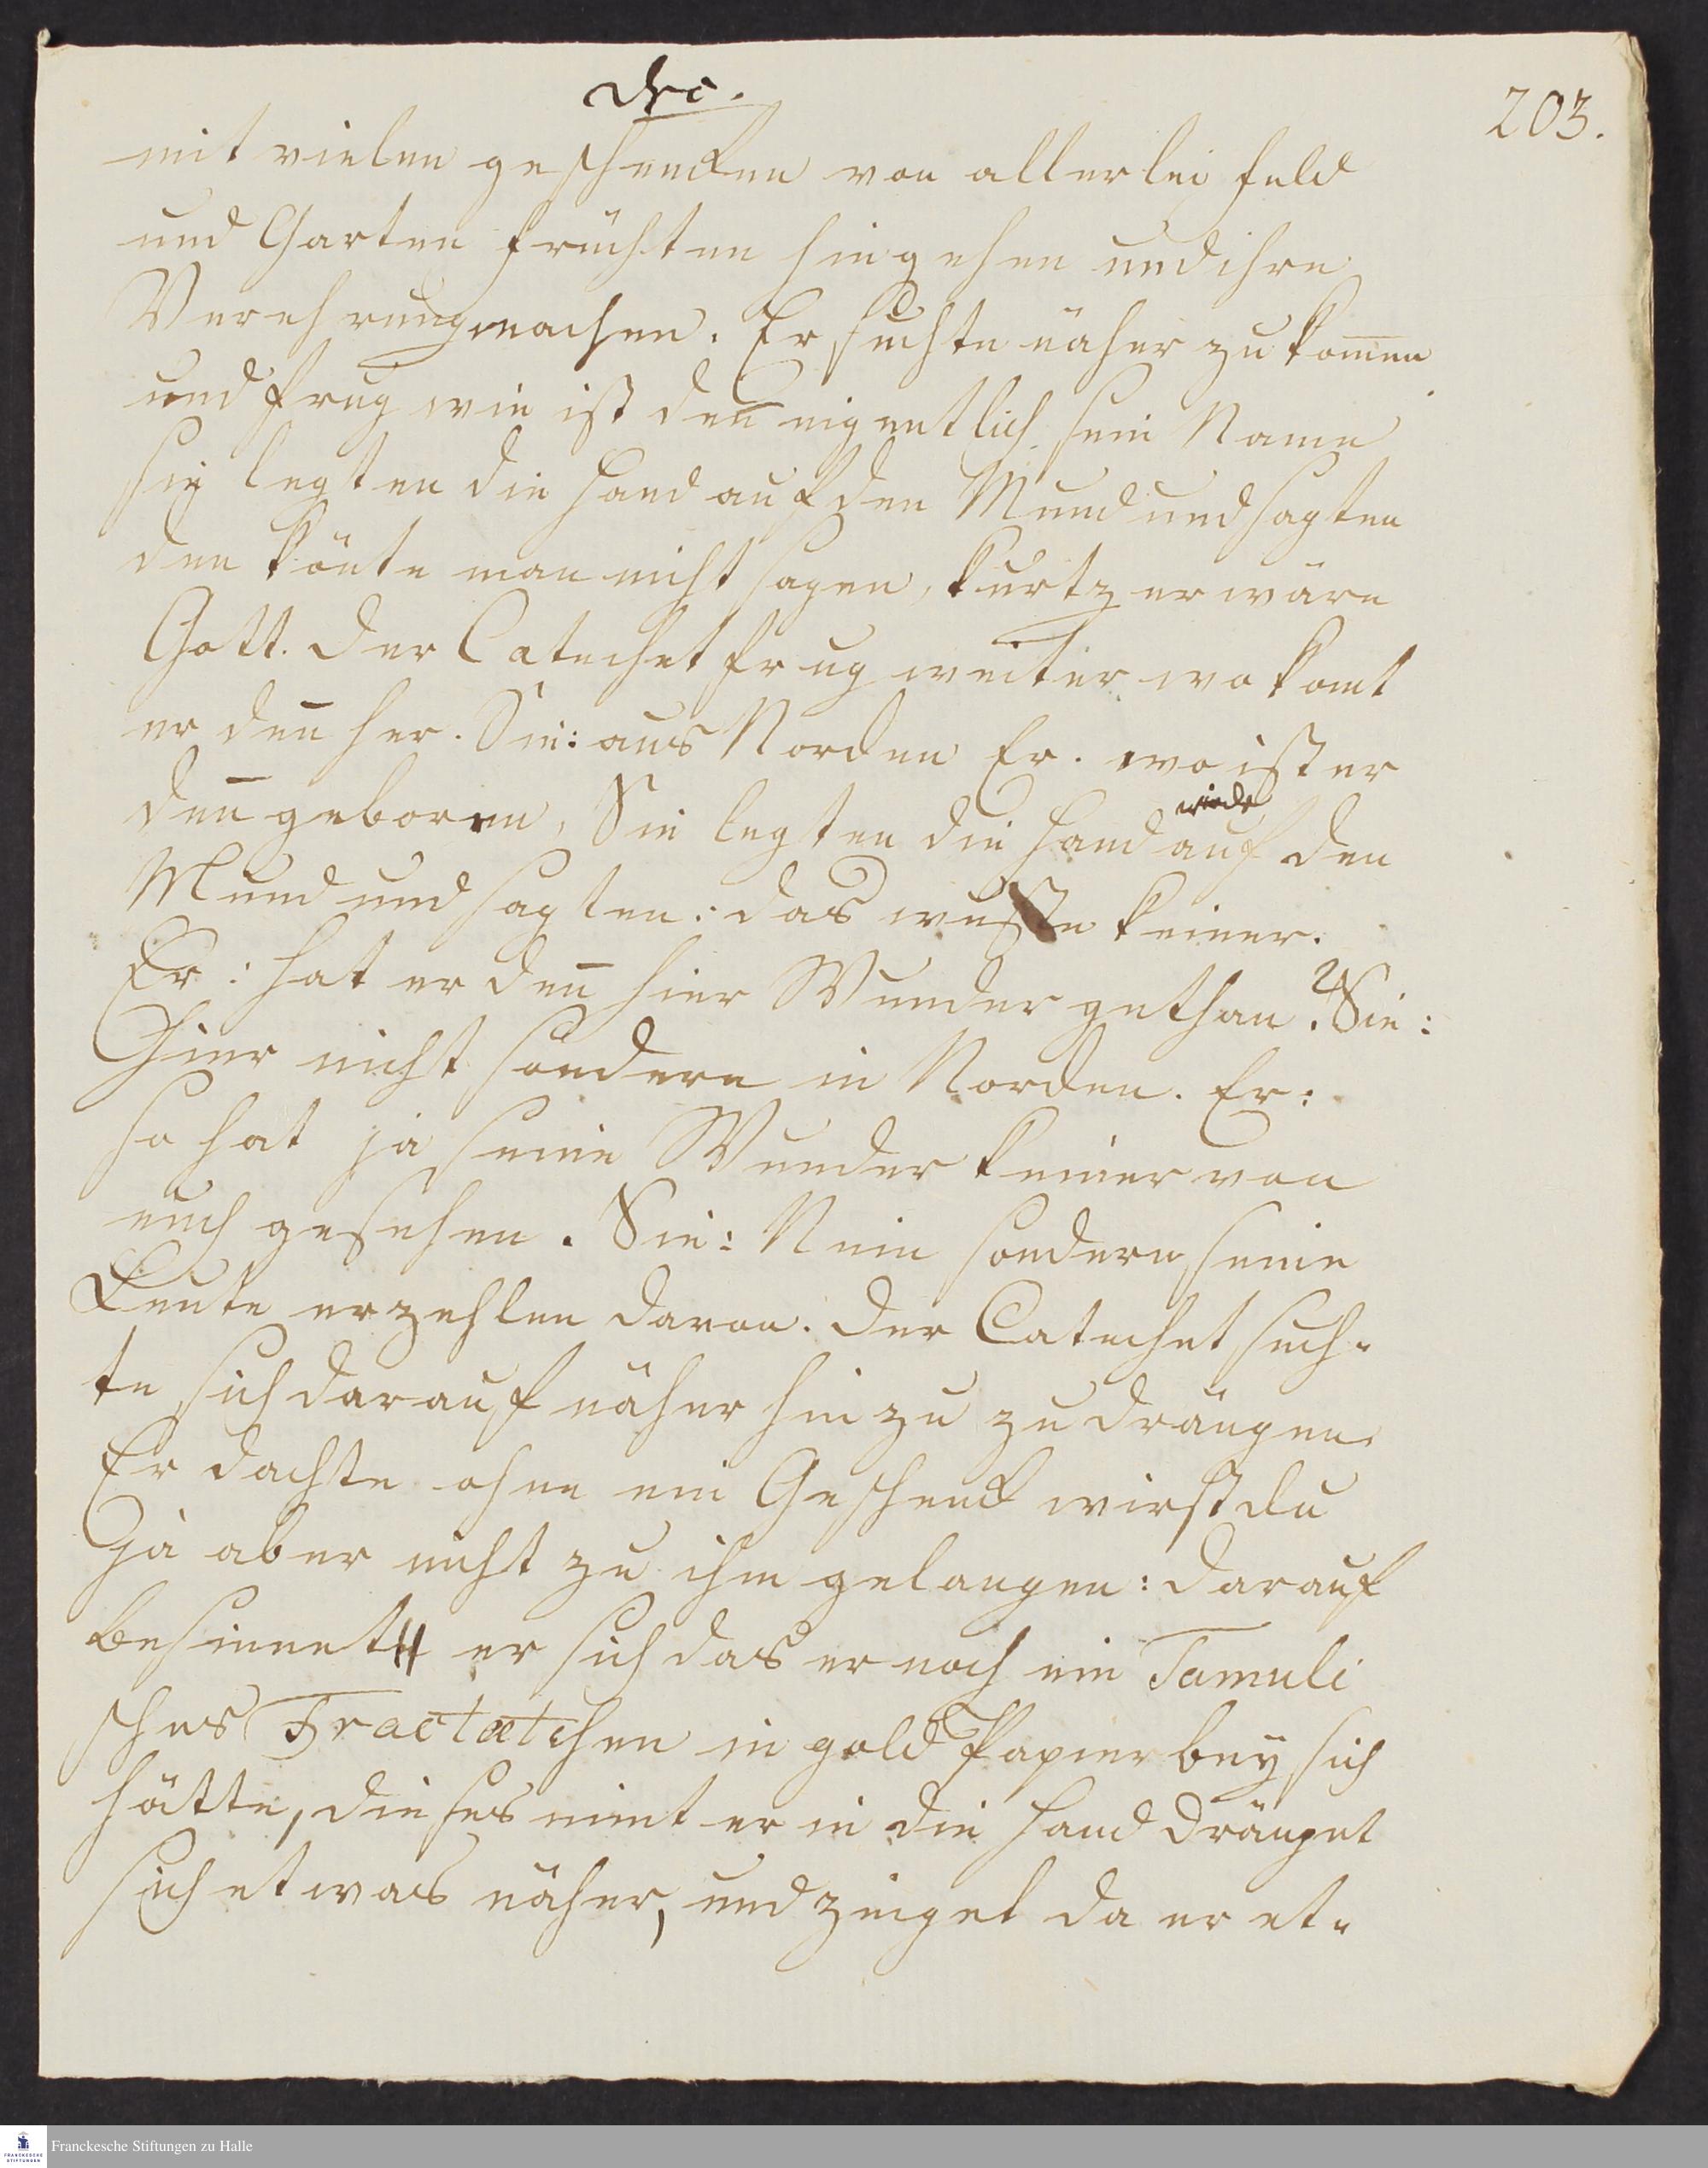 Dec.
203.
mit vielen geschencken von allerlei feld
und Garten früchten hingehen und ihre
Verehrung machen. Er suchte näher zu kom̅en
und frug wie ist den̅ eigentlich sein Name
sie legten die Hand auf den Mund und sagten
den könte man nicht sagen, kurtz er wäre
Gott. der Catechet frug weiter wo komt
er den̅ her. Sie: aus Norden Er. wo ist er
wieder
den̅ geboren, Sie legten die Hand auf den
Mund und sagten: das wuste keiner.
Er: hat er den̅ hier Wunder gethan? Sie:
Hier nicht sondern in Norden. Er:
so hat ja seine Wunder keiner von
euch gesehen. Sie: Nein sondern seine
Leute erzehlen davon. der Catechet such-
te sich darauf näher hinzu zu drängen.
Er dachte ohne ein Geschenck wirst du
Ja aber nicht zu ihm gelangen: darauf
besinnet er sich das er noch ein Tamuli
sches Tractätchen in gold Papier bey sich
hätte, dieses nimt er in die Hand dränget
sich etwas näher, und zeiget da er et-
Franckesche Stiftungen zu Halle
FRANCKESCHE
STIFTUNGEN